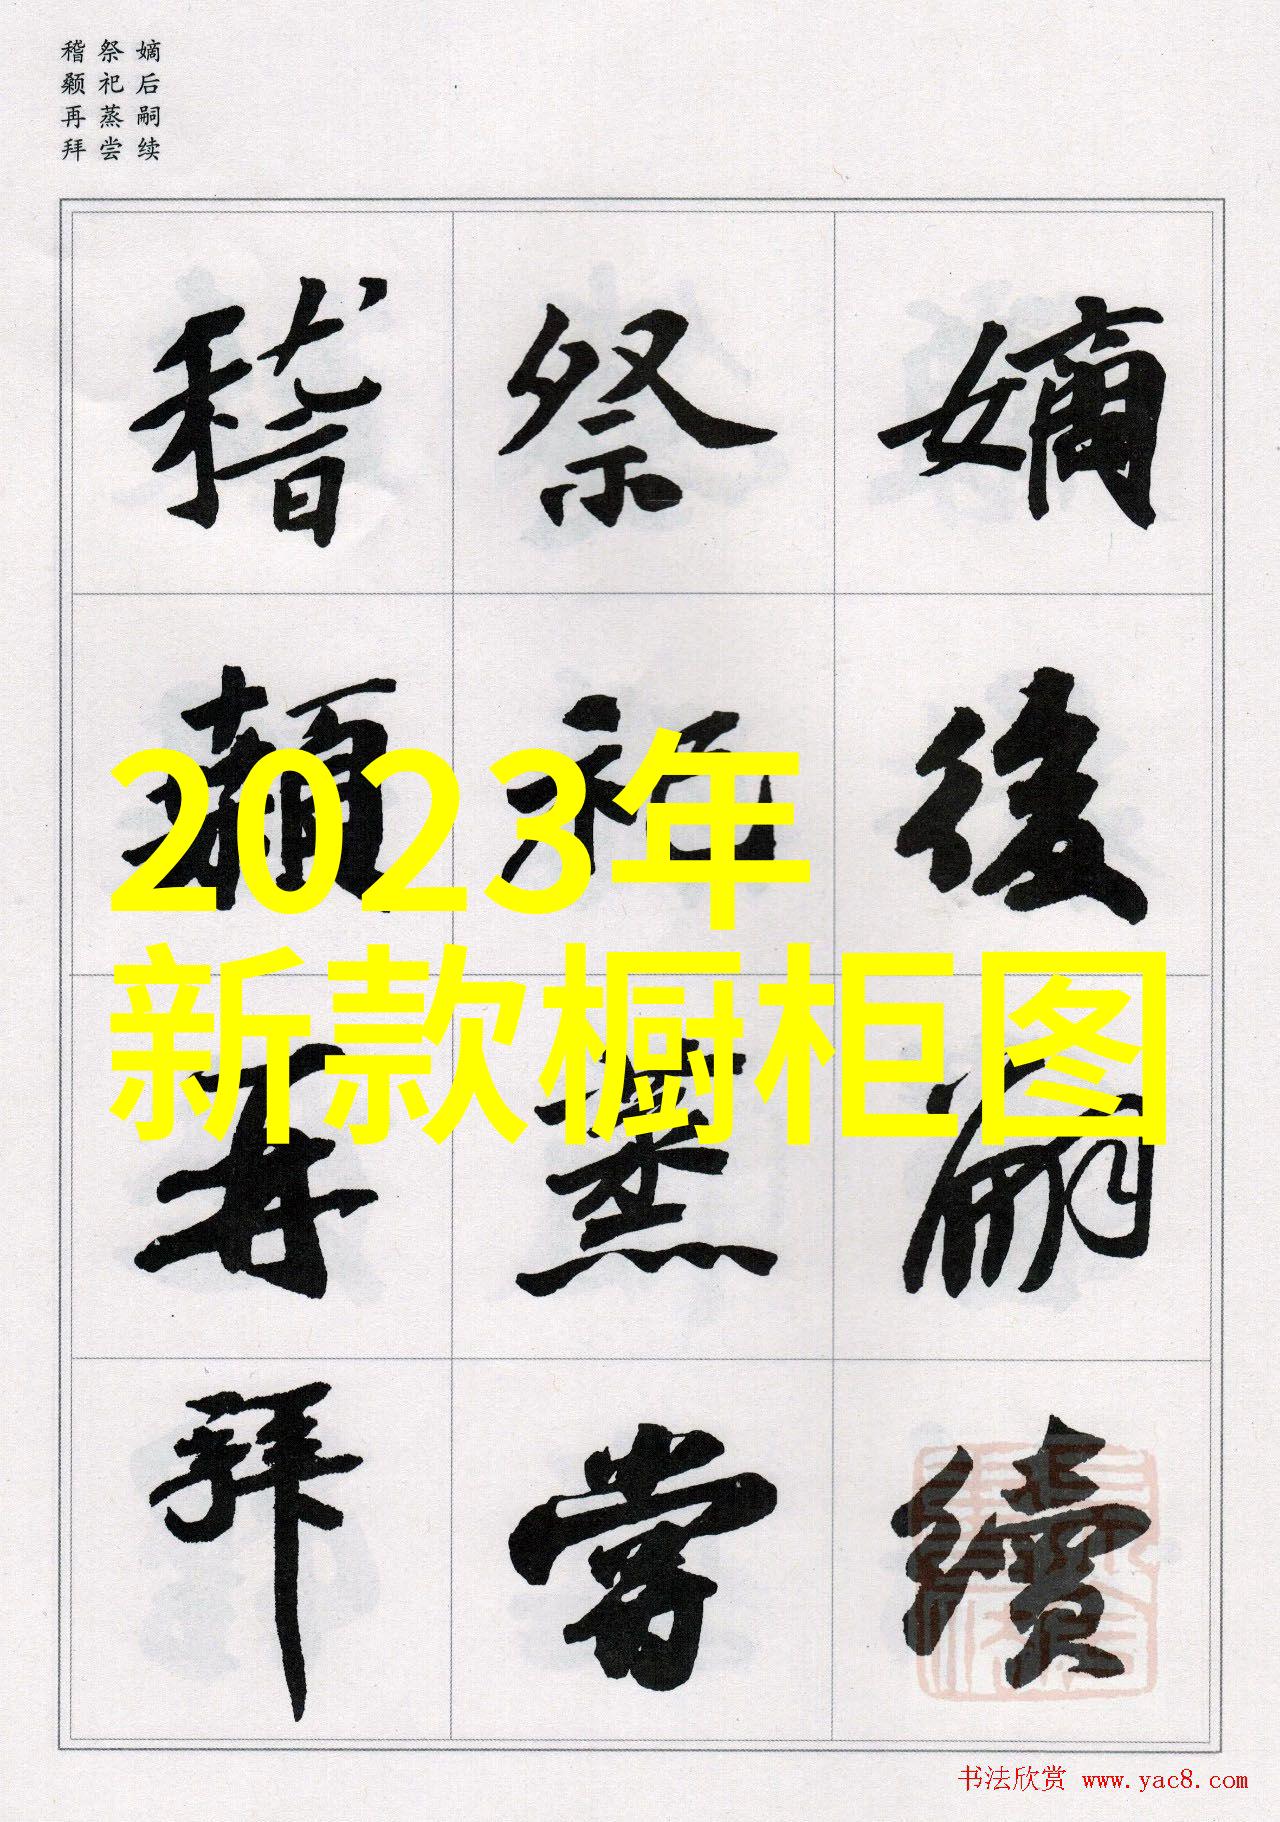 嫡后嗣续
祭祀蒸尝
稽颡再拜
嫡後嗣續
祭祀蒸嘗
稽顙再拜
2023年
新款橱柜图
书法欣赏 www.yac8.com